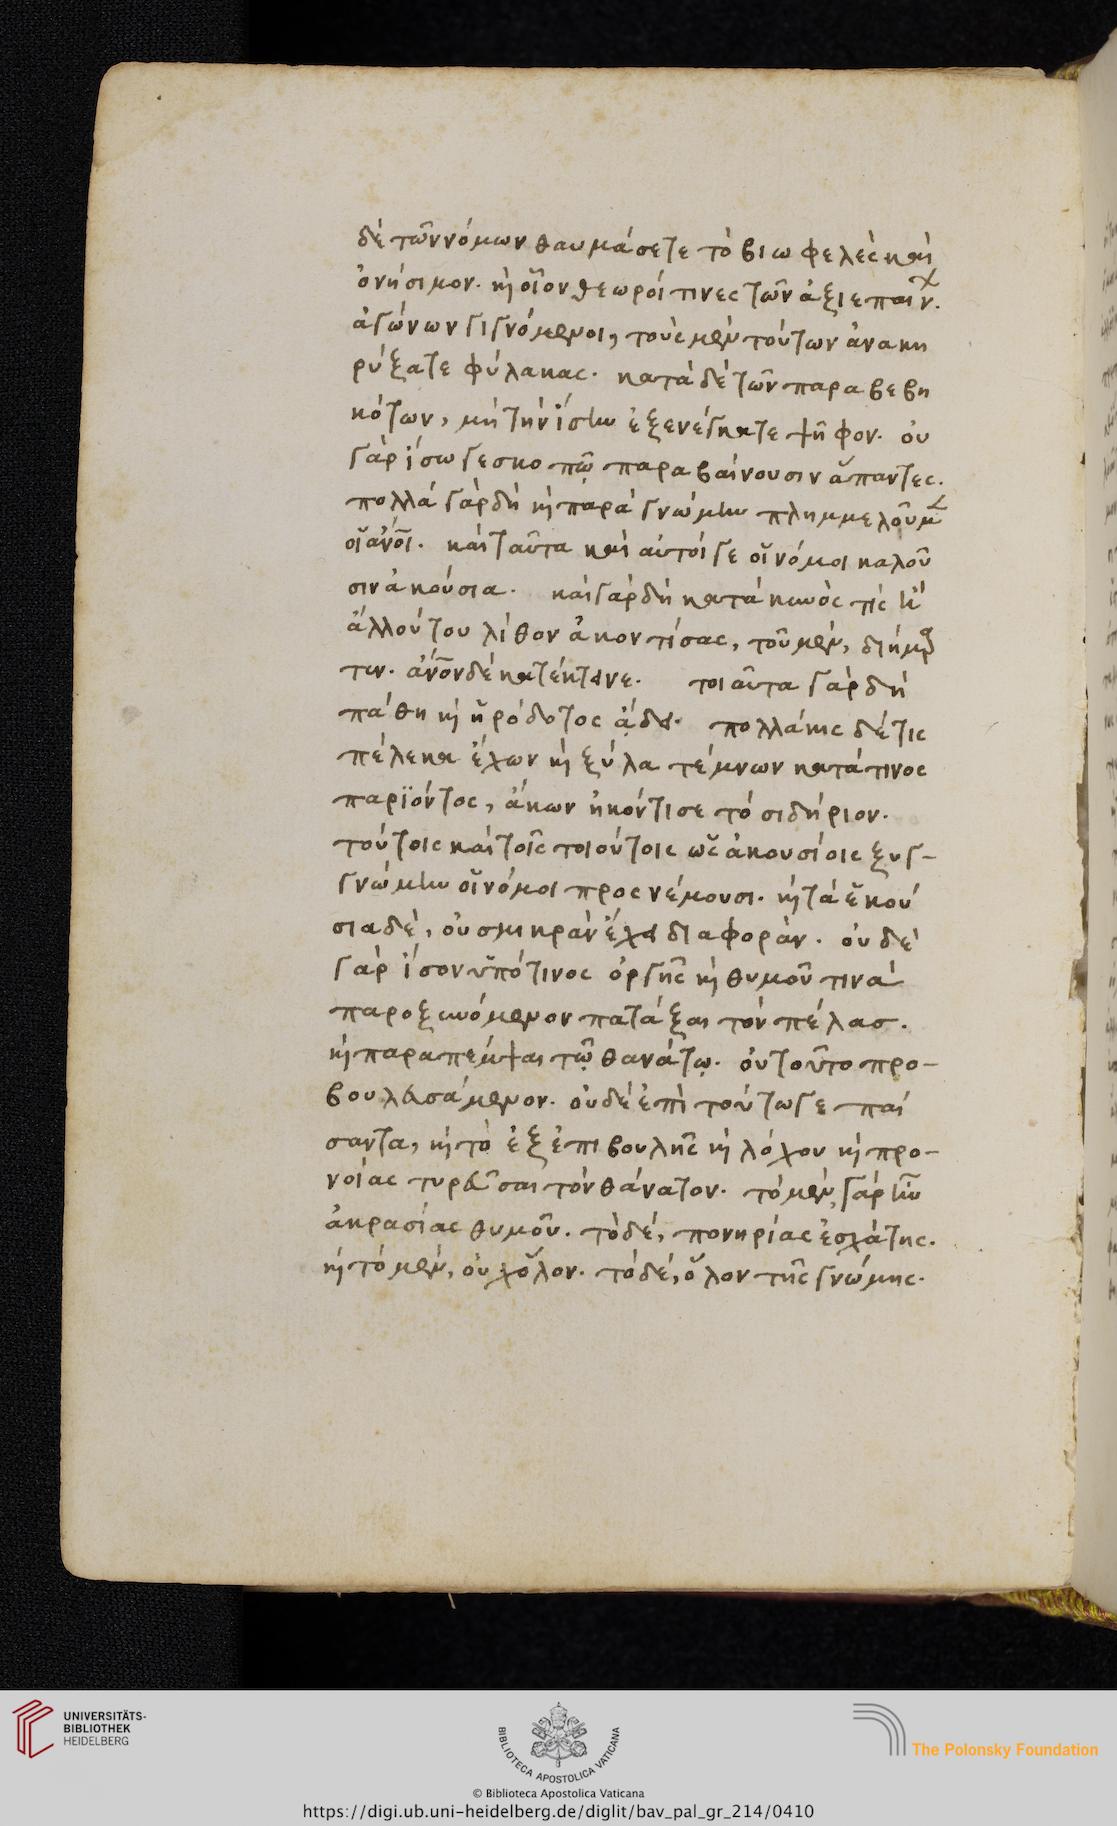 δὲ τῶν νόμων θαυμάσετε τὸ βιωφελὲς καὶ
ὀνήσιμον. κ̀ οἷον θεωροί τινες τῶν ἀξιεπαίν.
ἀγώνων γιγνόμενοι, τοὺς μὲν τούτων ἀνακη
ρύξατε φύλακας. κατὰ δὲ τῶν παραβεβη
κότων, μὴ τὴν ἴσην ἐξενέγκατε ψῆφον. οὐ
γὰρ ἴσω γε σκοπῷ παραβαίνουσιν ἅπαντες.
πολλὰ γὰρ δὴ κ̀ παρὰ γνώμην πλημμελοῦμ
οἱ ἀνοι. καὶ ταῦτα καὶ αὐτοί γε οἱ νόμοι καλοῦ
σιν ἀκούσια. καὶ γὰρ δὴ κατὰ κυνὸς τὶς ἢ
ἄλλού του λίθον ἀκοντίσας, τοῦ μὲν, διήμαρ
τεν. ἀνον δὲ κατέκτανε. τοιαῦτα γὰρ δὴ
πάθη κ̀ ἡρόδοτος ᾄδει. πολλάκις δέ τις
πέλεκα ἔχων κ̀ ξύλα τέμνων κατά τινος
παρϊόντος, ἄκων ἠκόντισε τὸ σιδήριον.
τούτοις καὶ τοῖς τοιούτοις ὡς ἀκουσίοις ξυγ-
γνώμην οἱ νόμοι προσνέμουσι. κ̀ τὰ ἑκού
σια δὲ, οὐ σμικρὰν ἔχει διαφοράν. οὐ δὲ
γὰρ ἴσον ὑπό τινος ὀργῆς κ̀ θυμοῦ τινὰ
παροξυνόμενον πατάξαι τὸν πέλας.
κ̀ παραπέμψαι τῷ θανάτῳ. οὐ τοῦτο προ-
βουλευσάμενον. οὐδὲ ἐπὶ τούτω γε παί
σαντα, κ̀ τὸ ἐξ ἐπιβουλῆς κ̀ λόχου κ̀ προ-
νοίας τυρεῦσαι τὸν θάνατον. τὸ μὲν, γὰρ ἦν
ἀκρασίας θυμοῦ. τὸ δὲ, πονηρίας ἐσχάτης.
κ̀ τὸ μὲν, οὐχ ὅλον. τὸ δὲ, ὅλον τῆς γνώμης.
UNIVERSITÄTS-
BIBLIOTHEK
HEIDELBERG
BIBLIOTECA APOSTOLICA VATICANA
The Polonsky Foundation
© Biblioteca Apostolica Vaticana
https://digi.ub.uni-heidelberg.de/diglit/bav_pal_gr_214/0410